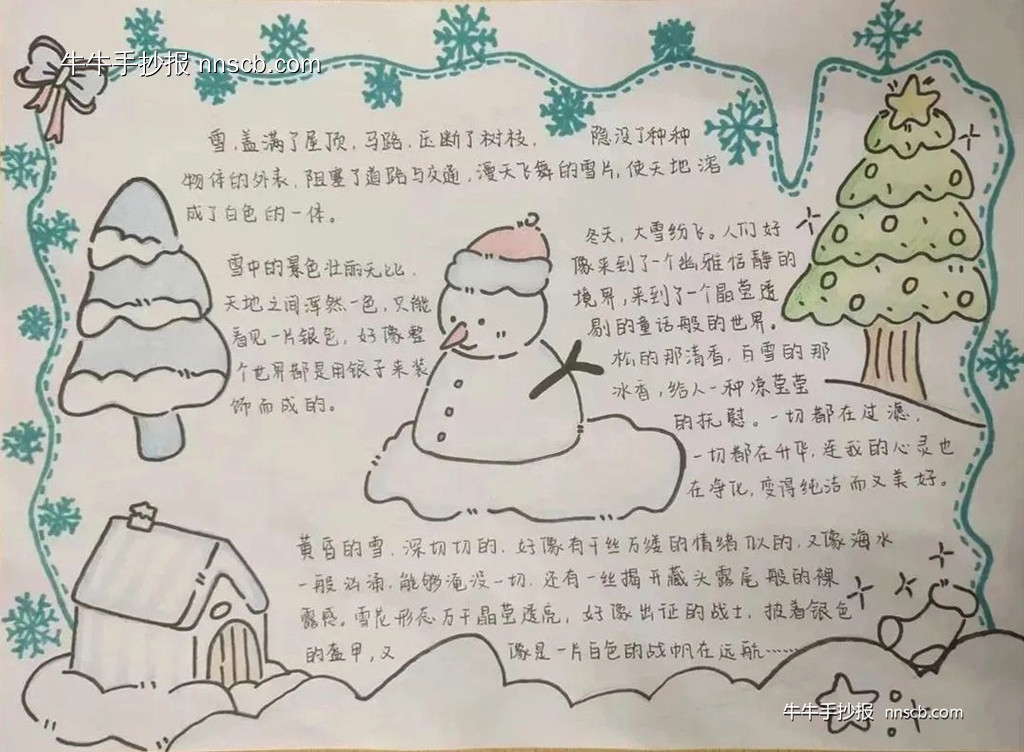 牛牛手抄报 nnscb.com
雪,盖满了屋顶,马路,压断了树枝, 隐没了种种
物体的外表,阻塞了道路与交通,漫天飞舞的雪片,使天地溶
成了白色的一体。
雪中的景色壮丽无比,
天地之间浑然一色,只能
看见一片银色,好像整
个世界都是用银子来装
饰而成的。
冬天,大雪纷飞。人们好
像来到了一个幽雅恬静的
境界,来到了一个晶莹透
剔的童话般的世界。
松的那清香,白雪的那
冰香,给人一种凉莹莹
的抚慰。一切都在过滤,
一切都在升华,连我的心灵也
在净化,变得纯洁而又美好。
黄昏的雪,深切切的,好像有千丝万缕的情绪似的,又像海水
一般汹涌,能够淹没一切,还有一丝揭开藏头露尾般的裸
露感。雪花形态万千晶莹透亮,好像出征的战士,披着银色
的盔甲,又 像是一片白色的战帆在远航……
牛牛手抄报 nnscb.com